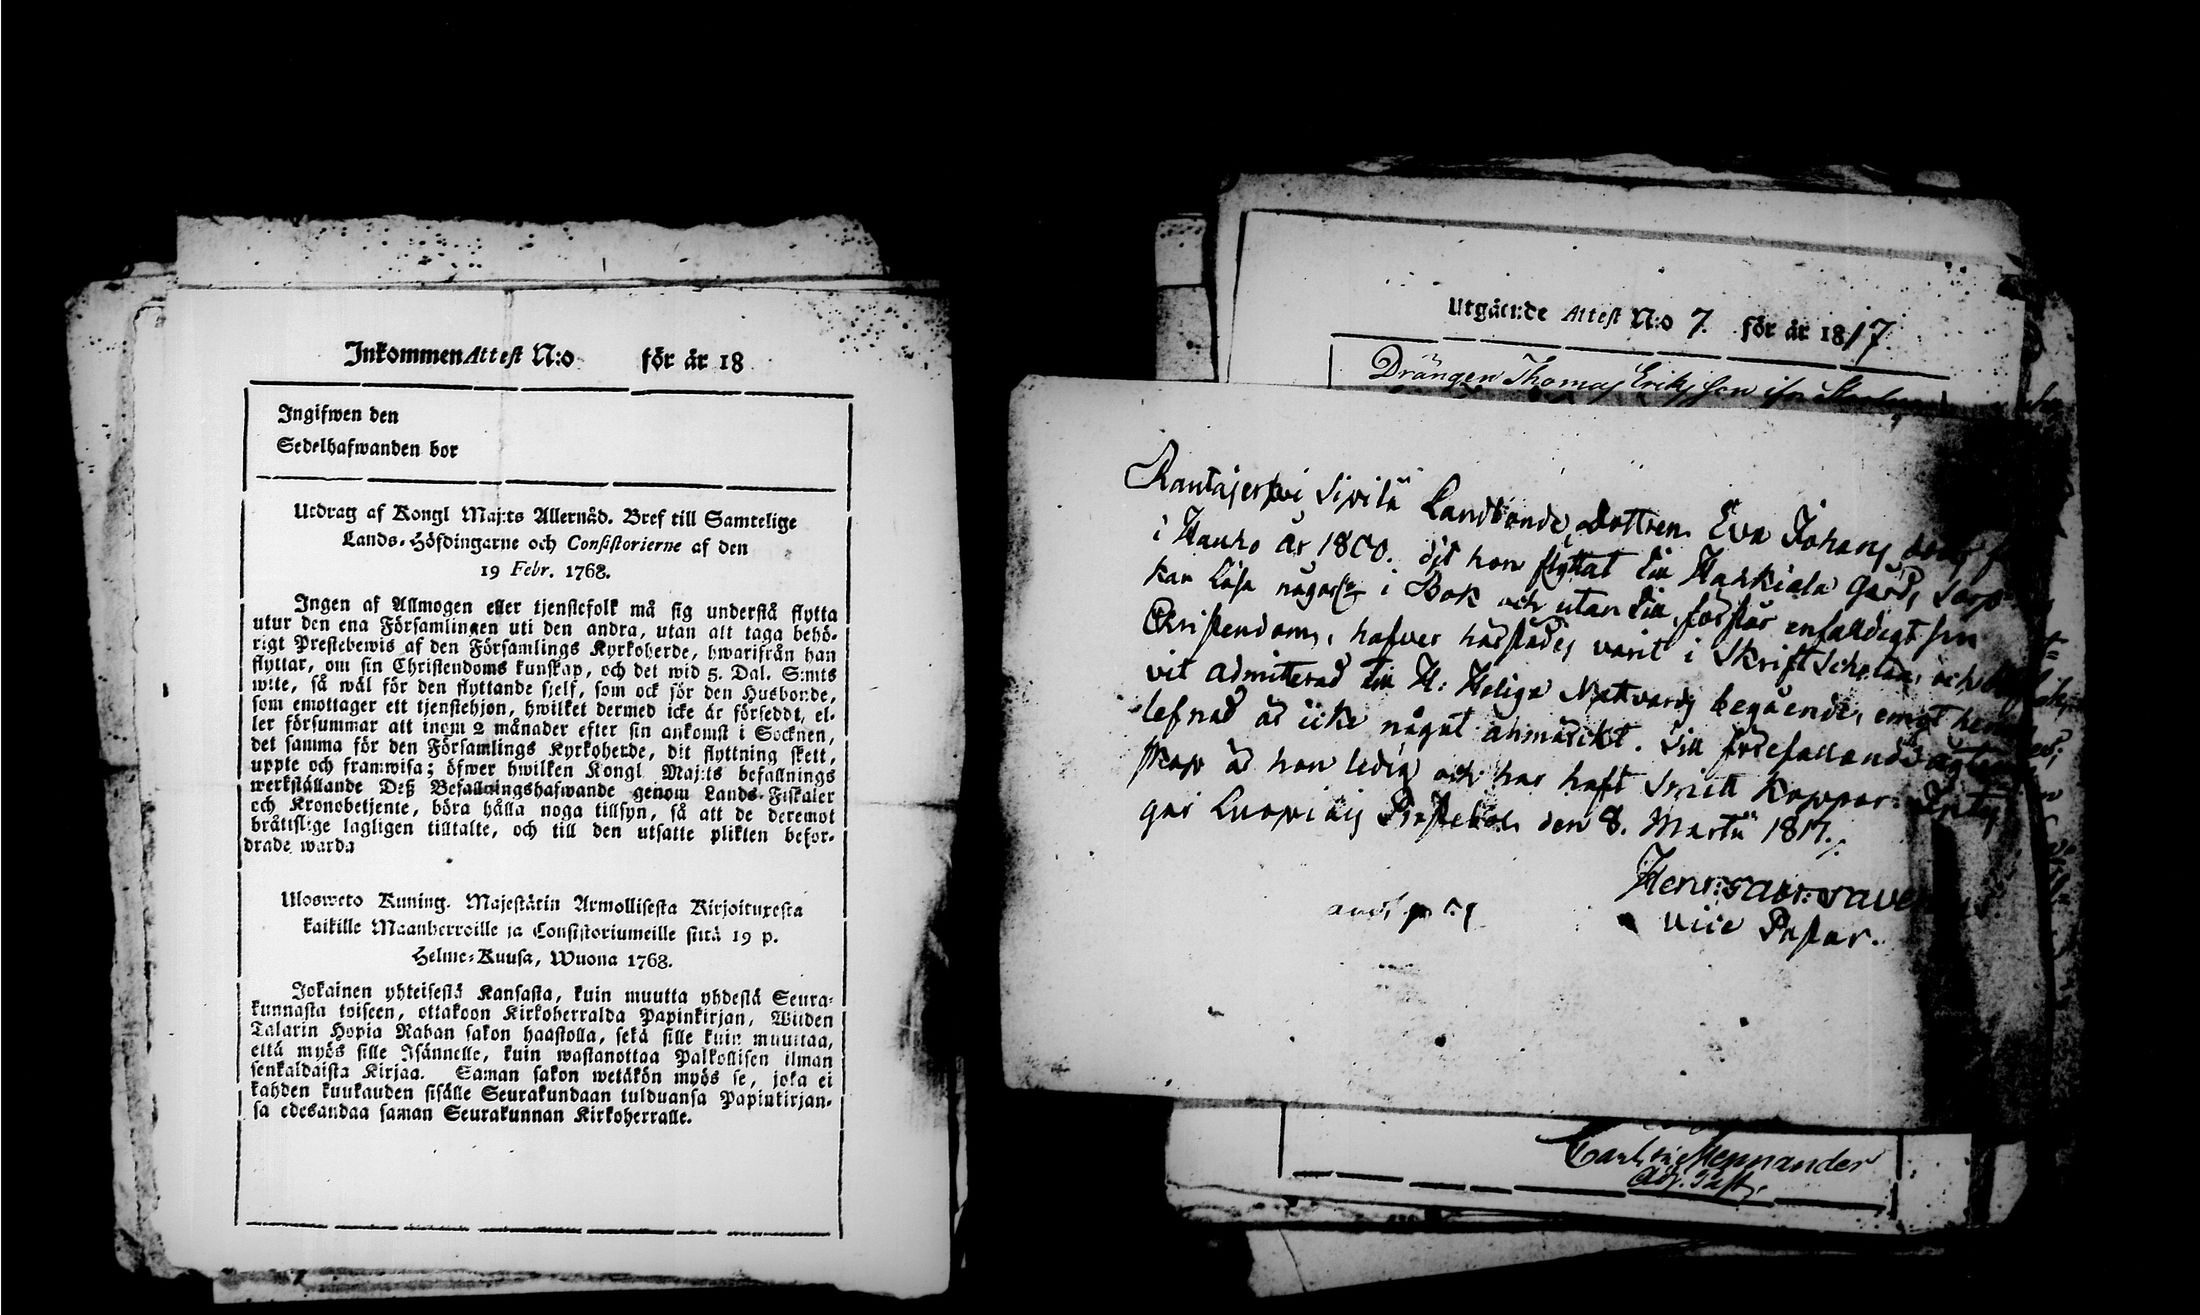 Inkommen Attest N:o för år 18
Ingifwen den
Sedelhafwanden bor
Utdrag af Kongl Maj:ts Allernåd. Bref till Samtelige
Lands-Höfdingarne och Consistorierne af den
19 Febr. 1768.
Ingen af Allmogen eller tjenstefolk må sig understå flytta
utur den ena Församlingen uti den andra, utan att taga behö-
rigt Prestebewis af den Församlings Kyrkoherde, hwarifrån han
flyttar, om sin Christendoms kunskap, och det wid 5. Dal. S:mts
wite, så wäl för den flyttande sjelf, som ock för den Husbonde,
som emottager ett tjenstehjon, hwilket dermed icke är förseddt, el-
ler försummar att inom 2 månader efter sin ankomst i Socknen,
det samma för den Församlings Kyrkoherde, dit flyttning skett,
uppte och framwisa; öfwer hwilken Kongl Maj:ts befallnings
werkställande Deß Befallningshafwande genom Lands-Fiskaler
och Kronobetjente, böra hålla noga tillsyn, så att de deremot
bråttslige lagligen tilltalte, och till den utsatte plikten befor-
drade warda
Ulosweto Kuning. Majestätin Armollisesta Kirjoituxesta
kaikille Maanherroille ja Consistoriumeille siitä 19 p.
Helme-Kuusa, Wuona 1768.
Jokainen yhteisestä Kansasta, kuin muutta yhdestä Seura-
kunnasta toiseen, ottakoon Kirkoherralda Papinkirjan, Wiiden
Talarin Hopia Rahan sakon haastolla, sekä sille kuin muuttaa,
että myös sille Isännelle, kuin wastanottaa Palkollisen ilman
senkaldaista Kirjaa. Saman sakon wetäkön myös se, joka ei
kahden kuukauden sisälle Seurakundaan tulduansa Papinkirjan-
sa edesandaa saman Seurakunnan Kirkoherralle.
Utgående Attest N:o 7. för år 1817.
Drängen Thomas Eriksson
Rantajerfvi Sipilä Landbonde Dottren Eva Johans dotter
i Hauho år 1800. dit hon flyttat till Hahkiala Gård,
kan läsa något i Bok och utan till, förstår enfaldigt sin
Christendom, hafver härstädes varit i Skrift Scholan och
vit admiterad till H: Heliga Nattvards begående, emot hennes
lefnad är icke något anmärkt. Till förefallande ägten
skap är hon ledig och har haft Smitt Koppor.
den 8. Martii 1817.
vice Pastor.
Mennander
Adj. Past.